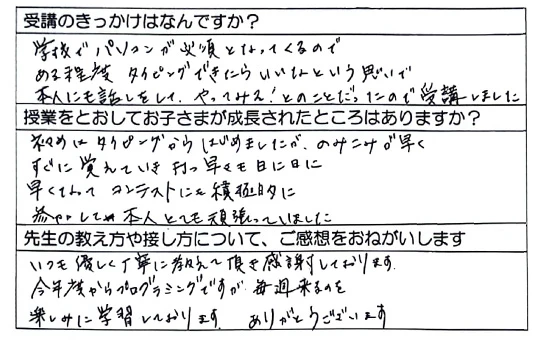 受講のきっかけはなんですか？
学校でパソコンが必須となってくるので
ある程度タイピングできたらいいなという思いで
本人にも話しをして、やってみえ！とのことだったので受講しました
授業をとおしてお子さまが成長されたところはありますか？
初めはタイピングからはじめましたが、のみこみが早く
すぐに覚えていき打つ早さも日に日に
早くなって コンテストにも積極的に
参加して 本人とても頑張っていました
先生の教え方や接し方について、ご感想をおねがいします
いつも優しく丁寧に教えて頂き感謝しております。
今年度からプログラミングですが、毎週来るのを
楽しみに学習しております。 ありがとうございます